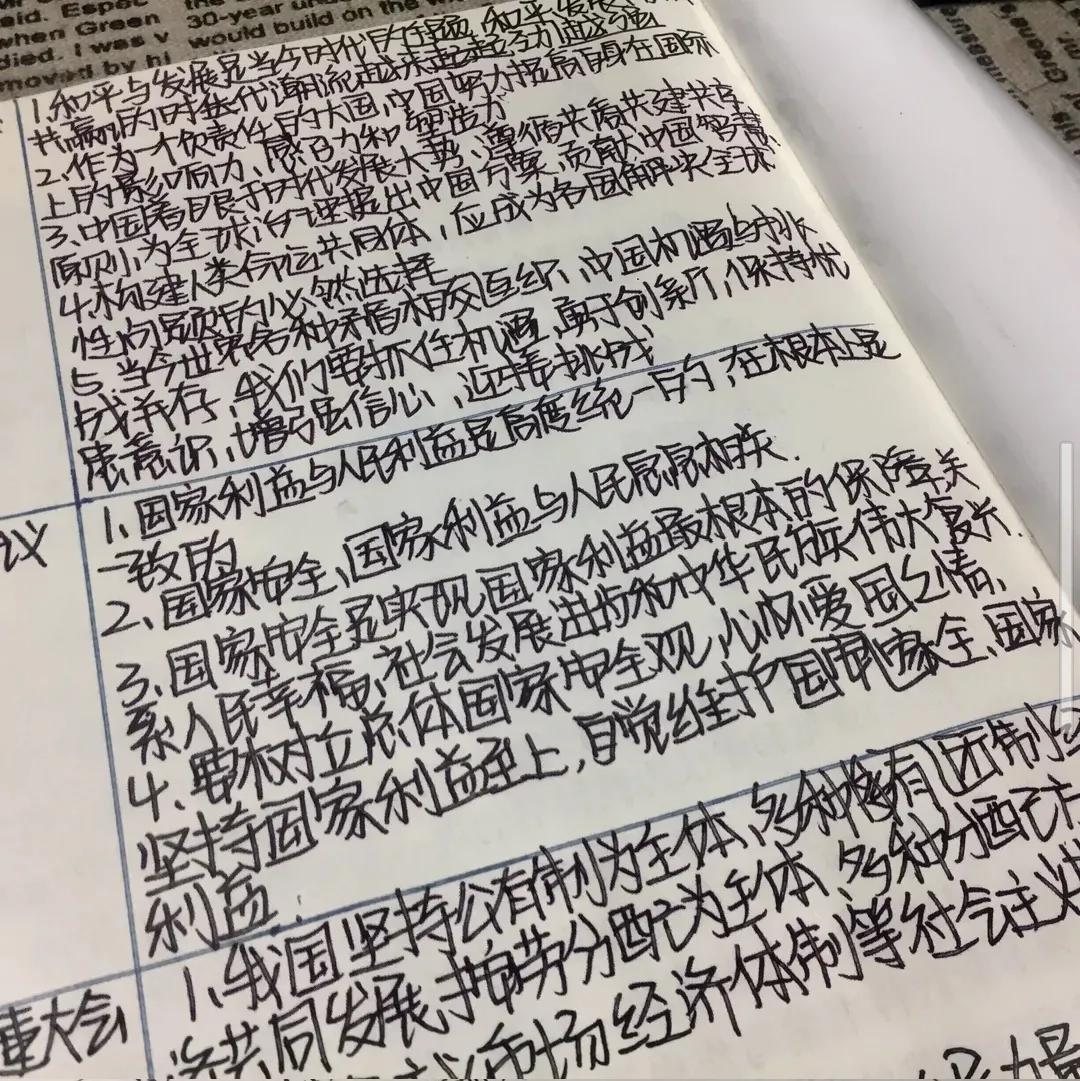 aid. Espec
when Green
died. I was v
moved by hi
30-year und
would build on the w
1.和平与发展是当今时代的主题,和平发展
共赢的时代潮流越来越
2.作为一个负责任的大国,中国努力提高自身在国际
上的影响力、感召力和塑造力
3.中国着眼于时代发展大势、遵循共商共建共享
原则,为全球治理提出中国方案,贡献中国智慧
4.构建人类命运共同体,应成为各国解决全球
性问题的必然选择
5.当今世界各种矛盾相交互织,中国机遇与挑
战并存,我们要抓住机遇,勇于创新,保持忧
患意识,增强信心,迎接挑战
1.国家利益与人民利益是高度统一的,在根本上是
一致的
2.国家安全,国家利益与人民息息相关.
3.国家安全是实现国家利益最根本的保障,关
系人民幸福、社会发展进步和中华民族伟大复兴.
4.要树立总体国家安全观,心怀爱国之情,
坚持国家利益至上,自觉维护国家安全、国家
利益.
议
1.我国坚持公有制为主体、多种所有制经
济共同发展,按劳分配为主体、多种分配方
市场经济体制等社会主义
重大会